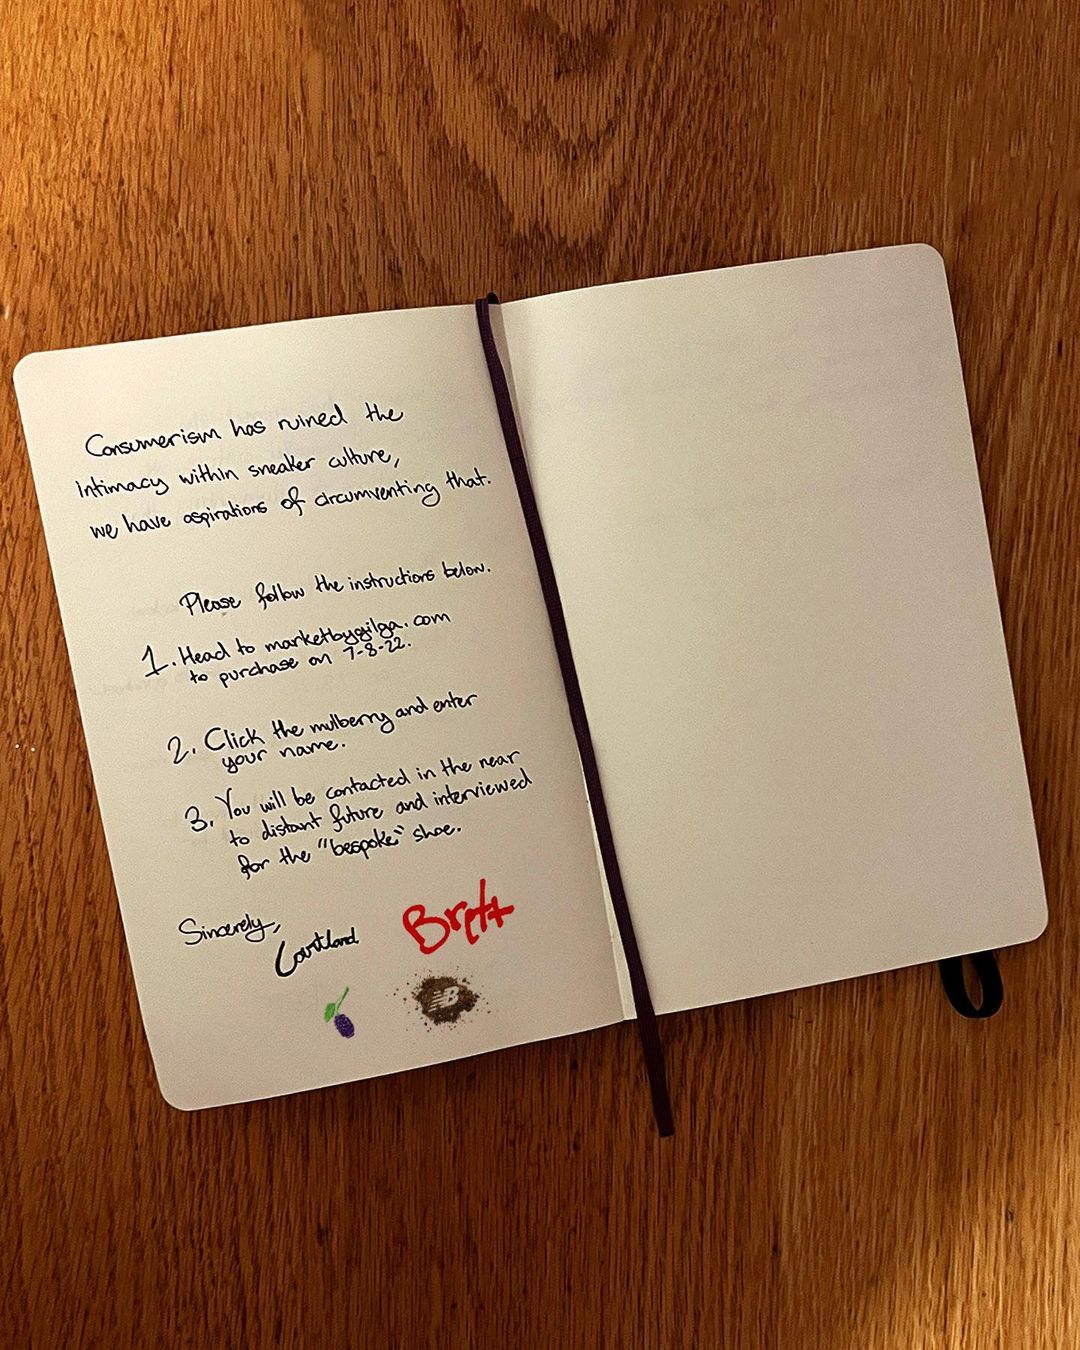 Consumerism has ruined the
intimacy within sneaker culture,
we have aspirations of circumventing that.
Please follow the instructions below.
1. Head to marketbygilga.com
to purchase on 7-8-22.
2. Click the mulberry and enter
your name.
3. You will be contacted in the near
to distant future and interviewed
for the "bespoke" shoe.
Sincerely,
Courtland Brett
NB